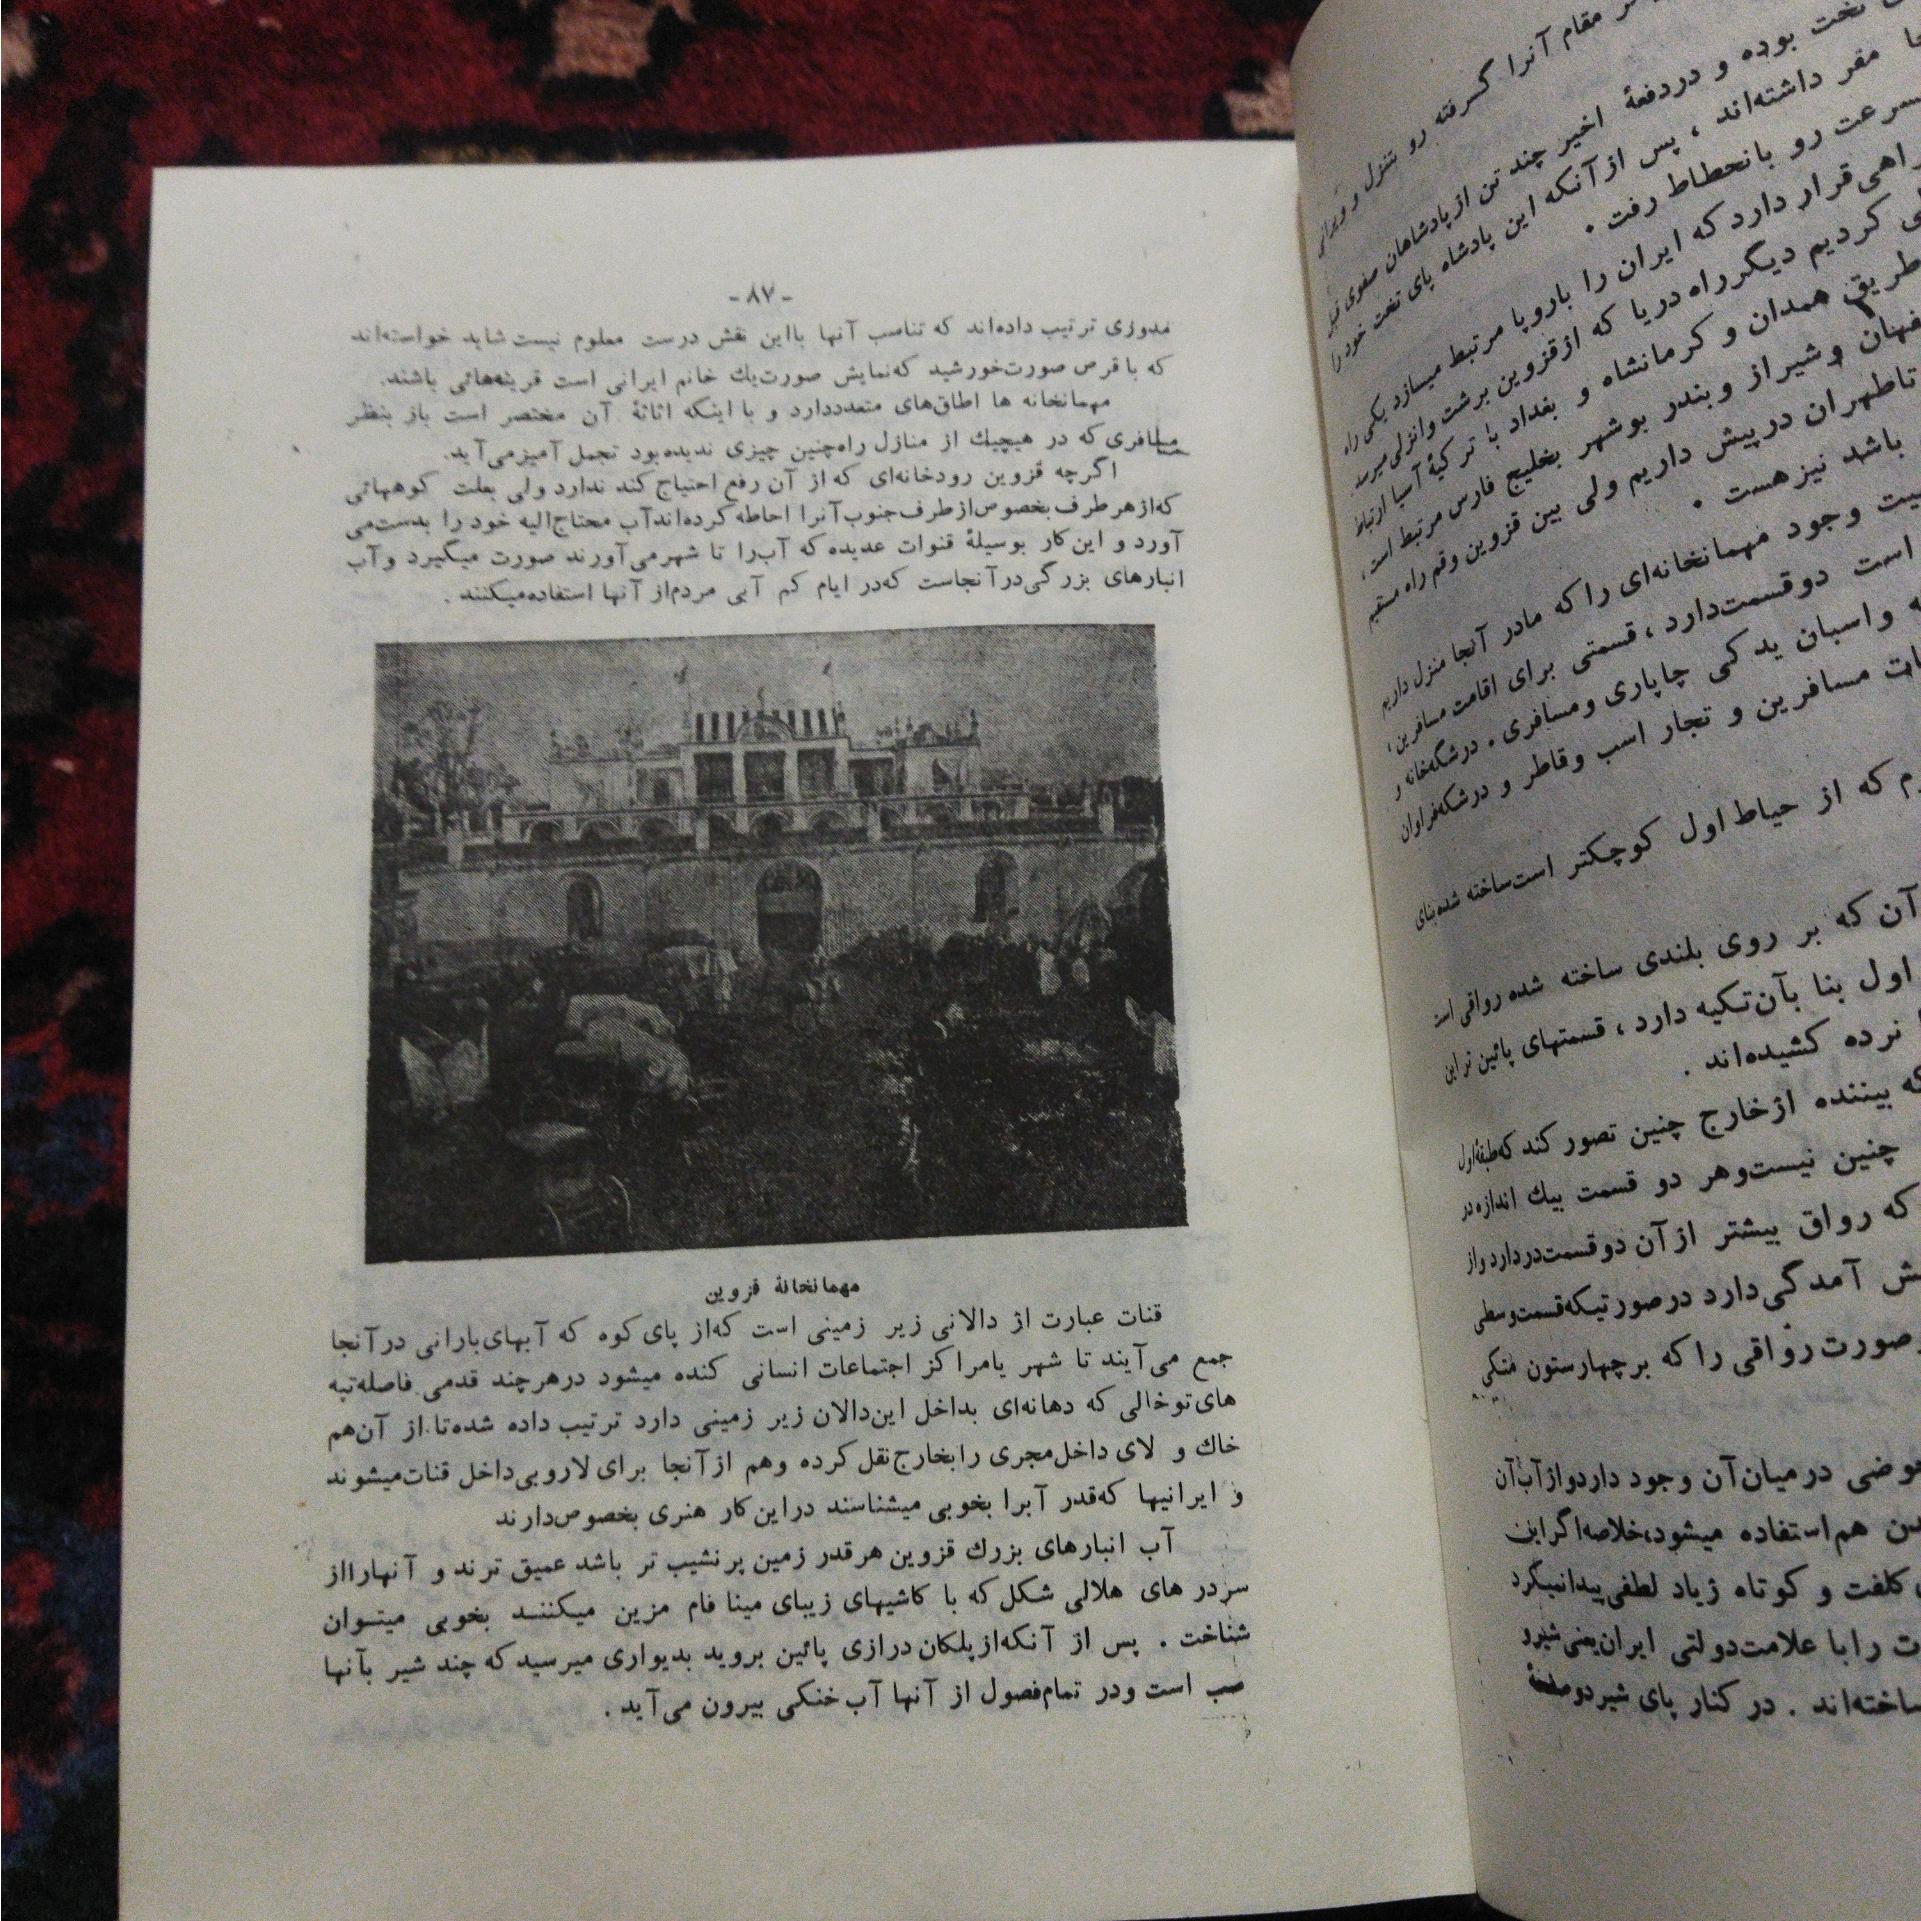 -۸۷-
مدوری ترتیب داده‌اند که تناسب آنها بااین نقش درست معلوم نیست شاید خواسته‌اند
که با قرص صورت‌خورشید که‌نمایش صورت‌یك خانم ایرانی است قرینه‌هائی باشند.
مهمانخانه ها اطاق‌های متعدددارد و با اینکه اثاثهٔ آن مختصر است باز بنظر
مسافری که در هیچیك از منازل راه‌چنین چیزی ندیده‌بود تجمل آمیز می‌آید.
اگرچه قزوین رودخانه‌ای که از آن رفع احتیاج کند ندارد ولی بعلت کوههائی
که‌از هر طرف بخصوص از طرف جنوب آنرا احاطه کرده‌اند آب محتاج‌الیه خود را بدست‌می
آورد و این کار بوسیلهٔ قنوات عدیده که آب‌را تا شهر می‌آورند صورت میگیرد و آب
انبارهای بزرگی در آنجاست که‌در ایام کم آبی مردم از آنها استفاده میکنند .
مهمانخانهٔ قزوین
قنات عبارت از دالانی زیر زمینی است که‌از پای کوه که آبهای بارانی در آنجا
جمع می‌آیند تا شهر یا مراکز اجتماعات انسانی کنده میشود در هر چند قدمی فاصله تپه
های توخالی که دهانه‌ای بداخل این‌دالان زیر زمینی دارد ترتیب داده شده‌تا از آن هم
خاك و لای داخل مجری را بخارج نقل کرده و هم از آنجا برای لاروبی داخل قنات میشوند
و ایرانیها که‌قدر آبرا بخوبی میشناسند در این کار هنری بخصوص دارند
آب انبارهای بزرك قزوین هر قدر زمین پر نشیب تر باشد عمیق ترند و آنهارا از
سردر های هلالی شکل که با کاشیهای زیبای مینا فام مزین میکنند بخوبی میتوان
شناخت . پس از آنکه‌از پلکان درازی پائین بروید بدیواری میرسید که چند شیر بآنها
است و در تمام فصول از آنها آب خنکی بیرون می‌آید .
مقام آنرا گرفته رو بتنزل و ویرانی
تخت بوده و در دفعهٔ اخیر چند تن از پادشاهان صفوی قبل
مقر داشته‌اند ، پس از آنکه این پادشاه پای تخت خود را
سرعت رو بانحطاط رفت .
راهی قرار دارد که ایران را باروپا مرتبط میسازد یکی راه
کردیم دیگر راه دریا که از قزوین برشت و انزلی میرسد
طریق همدان و کرمانشاه و بغداد با ترکیهٔ آسیا ارتباط
و شیراز و بندر بوشهر بخلیج فارس مرتبط است ،
تا طهران در پیش داریم ولی بین قزوین و قم راه مستقیم
باشد نیز هست .
وجود مهمانخانه‌ای را که مادر آنجا منزل داریم
است دو قسمت‌دارد ، قسمتی برای اقامت مسافرین ،
و اسبان یدکی چاپاری و مسافری . درشگه‌خانه و
مسافرین و تجار اسب و قاطر و درشکه فراوان
که از حیاط اول کوچکتر است ساخته شده بنای
آن که بر روی بلندی ساخته شده رواقی است
اول بنا بآن تکیه دارد ، قسمتهای پائین تر این
نرده کشیده‌اند .
بیننده از خارج چنین تصور کند که طبقهٔ اول
چنین نیست و هر دو قسمت بیك اندازه در
که رواق بیشتر از آن دو قسمت در دارد و از
آمدگی دارد در صورتیکه قسمت وسطی
صورت رواقی را که بر چهار ستون متکی
حوضی در میان آن وجود دارد و از آب آن
هم استفاده میشود، خلاصه اگر این
کلفت و کوتاه زیاد لطفی پیدا نمیکرد
را با علامت دولتی ایران یعنی شیر و
ساخته‌اند . در کنار پای شیر دو صفحهٔ